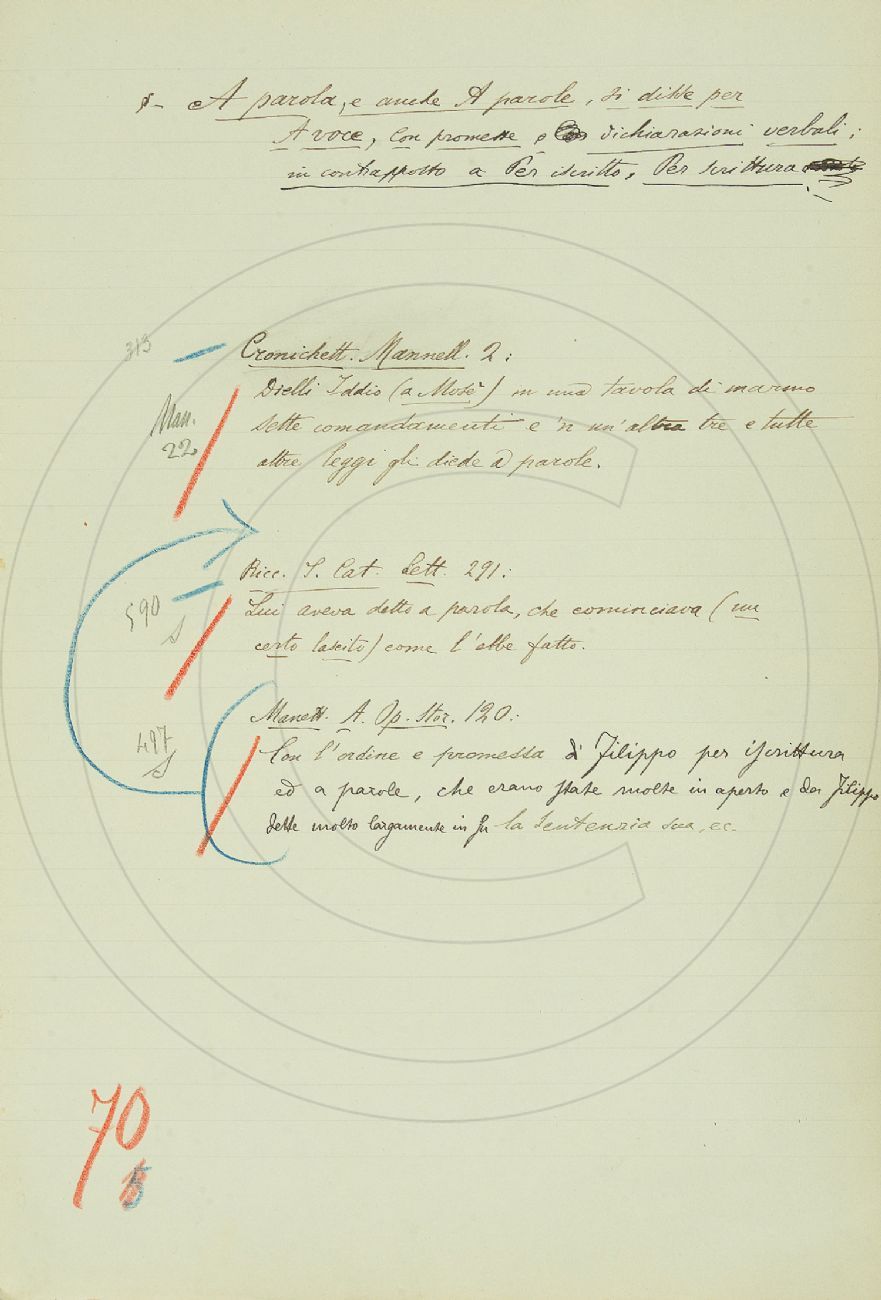 §- A parola, e anche A parole, si disse per
A voce, Con promesse o dichiarazioni verbali;
in contrapposto a Per iscritto, Per scrittura
313
Cronichett. Mannell. 2:
Dielli Iddio (a Mosè) in una tavola di marmo
Man.
sette comandamenti e 'n un'altra tre e tutte
22
altre leggi gli diede a parole.
Ricc. S. Cat. Lett. 291:
590
Lui aveva detto a parola, che cominciava (un
S
certo lascito) come l'ebbe fatto.
Manett. A. Op. Stor. 120:
497
S
Con l'ordine e promessa di Filippo per iscrittura
ed a parole, che erano state molte in aperto e da Filippo
dette molto largamente in su la sentenzia sua, ec.
70
5